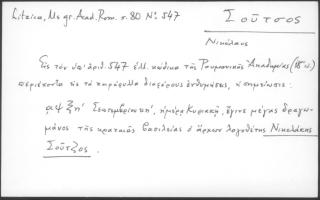 Litzica, Ms gr. Acad. Rom. σ. 80 Νο 547
Σοῦτσος
Νικόλαος
Εἰς τὸν ὑπ' ἀριθ. 547 ἑλλ. κώδικα τῆς Ρουμανικῆς Ἀκαδημίας (18 αἰ.)
περιέχοντα εἰς τὰ παράφυλλα διαφόρους ἐνθυμήσεις, ὁ σημειώσεις:
αψξη' Σεπτεμβρίου η', ἡμέρᾳ Κυριακῇ, ἔγινε μέγας δραγω-
μάνος τῆς κραταιᾶς βασιλείας ὁ ἄρχων λογοθέτης Νικολάκης
Σοῦτζος.